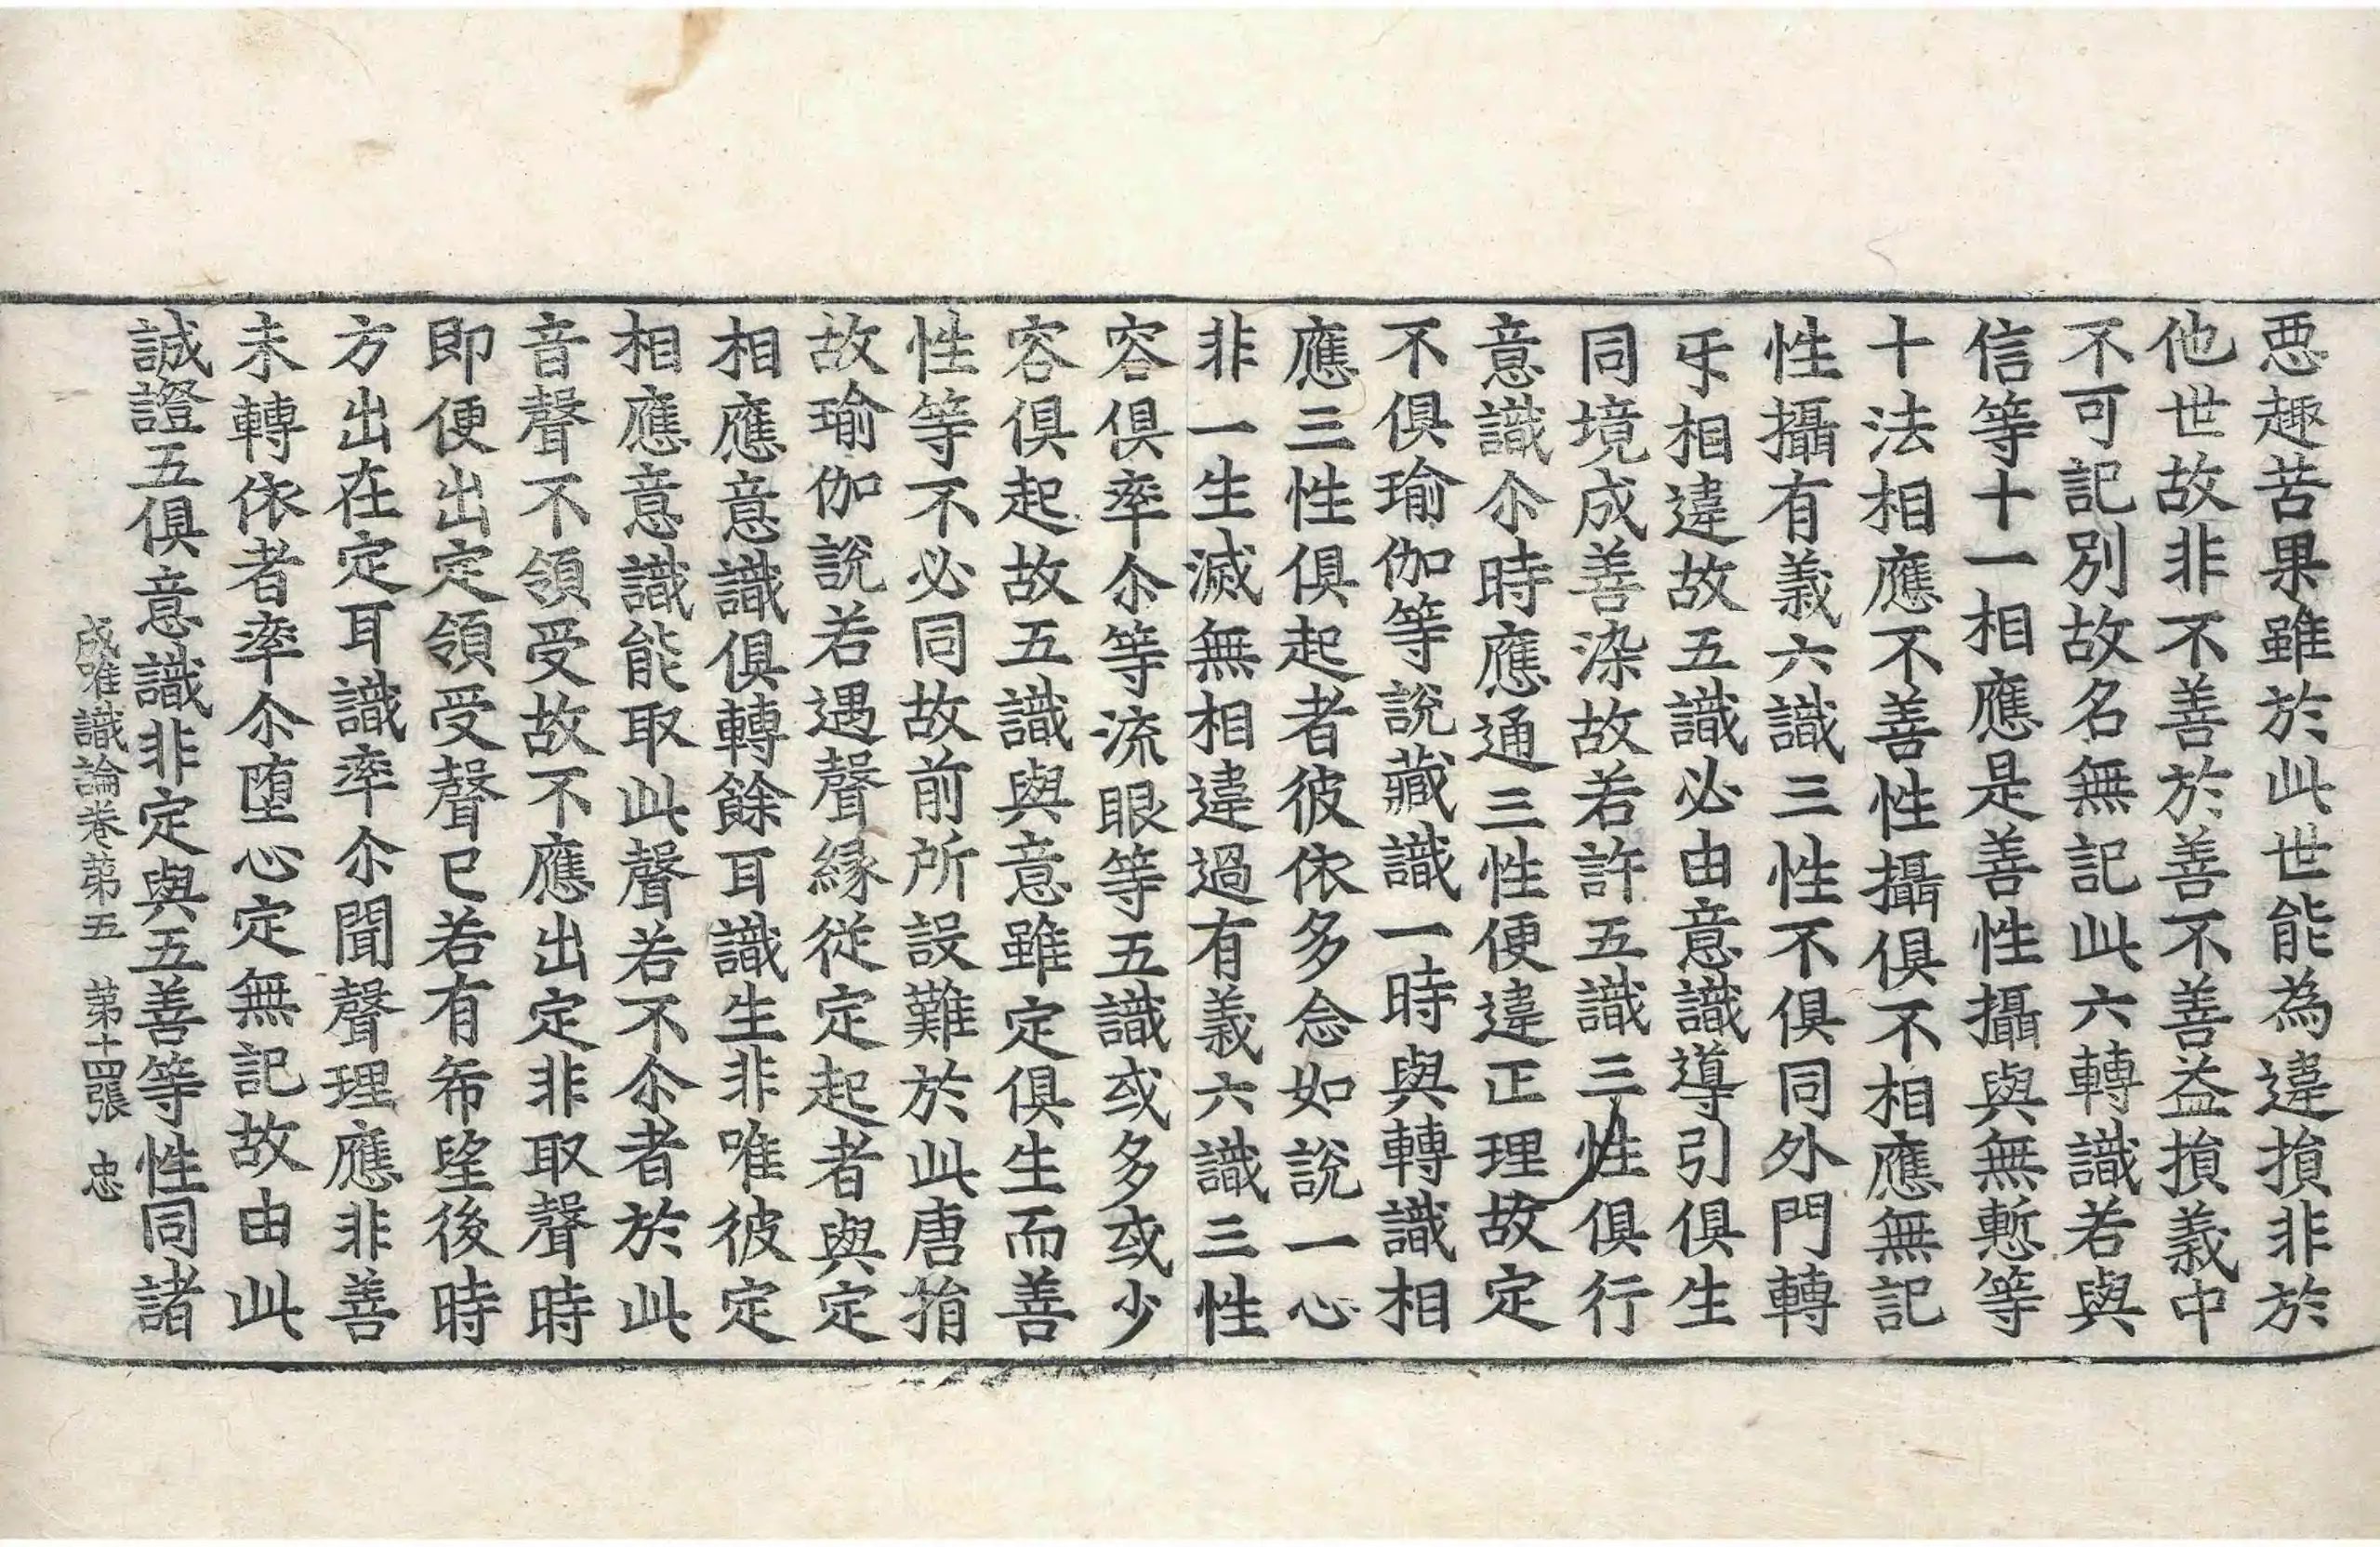 惡趣苦果雖於此世能為違損非於
他世故非不善於善不善益損義中
不可記別故名無記此六轉識若與
信等十一相應是善性攝與無慙等
十法相應不善性攝俱不相應無記
性攝有義六識三性不俱同外門轉
㸦相違故五識必由意識導引俱生
同境成善染故若許五識三性俱行
意識尒時應通三性便違正理故定
不俱瑜伽等說藏識一時與轉識相
應三性俱起者彼依多念如說一心
非一生滅無相違過有義六識三性
容俱率尒等流眼等五識或多或少
容俱起故五識與意雖定俱生而善
性等不必同故前所設難於此唐捐
故瑜伽說若遇聲緣從定起者與定
相應意識俱轉餘耳識生非唯彼定
相應意識能取此聲若不尒者於此
音聲不領受故不應出定非取聲時
即便出定領受聲已若有希望後時
方出在定耳識率尒聞聲理應非善
未轉依者率尒墮心定無記故由此
誠證五俱意識非定與五善等性同諸
成唯識論卷第五 第十四張 忠